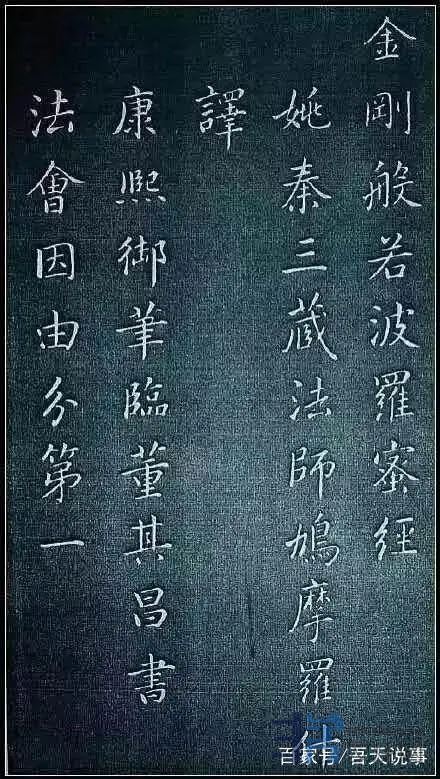 金剛般若波羅蜜經
姚秦三藏法師鳩摩羅什
譯
康熙御筆臨董其昌書
法會因由分第一
百家号/吾天说事